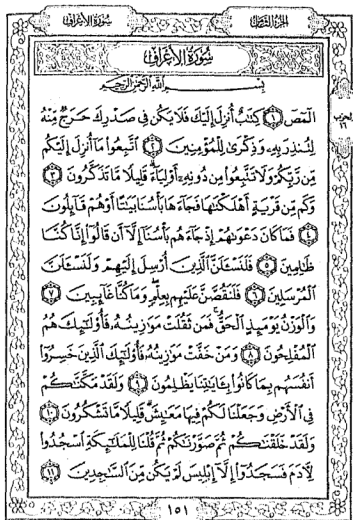 سورة الأعراف
الجزء الثامن
سورة الأعراف
بسم الله الرحمن الرحيم
الٓمٓصٓ ١ كِتَٰبٌ أُنزِلَ إِلَيْكَ فَلَا يَكُن فِى صَدْرِكَ حَرَجٌ مِّنْهُ
لِتُنذِرَ بِهِۦ وَذِكْرَىٰ لِلْمُؤْمِنِينَ ٢ ٱتَّبِعُوا۟ مَآ أُنزِلَ إِلَيْكُم
مِّن رَّبِّكُمْ وَلَا تَتَّبِعُوا۟ مِن دُونِهِۦٓ أَوْلِيَآءَ قَلِيلًا مَّا تَذَكَّرُونَ ٣
وَكَم مِّن قَرْيَةٍ أَهْلَكْنَٰهَا فَجَآءَهَا بَأْسُنَا بَيَٰتًا أَوْ هُمْ قَآئِلُونَ
٤ فَمَا كَانَ دَعْوَىٰهُمْ إِذْ جَآءَهُم بَأْسُنَآ إِلَّآ أَن قَالُوٓا۟ إِنَّا كُنَّا
ظَٰلِمِينَ ٥ فَلَنَسْـَٔلَنَّ ٱلَّذِينَ أُرْسِلَ إِلَيْهِمْ وَلَنَسْـَٔلَنَّ
ٱلْمُرْسَلِينَ ٦ فَلَنَقُصَّنَّ عَلَيْهِم بِعِلْمٍ وَمَا كُنَّا غَآئِبِينَ ٧
وَٱلْوَزْنُ يَوْمَئِذٍ ٱلْحَقُّ فَمَن ثَقُلَتْ مَوَٰزِينُهُۥ فَأُو۟لَٰٓئِكَ هُمُ
ٱلْمُفْلِحُونَ ٨ وَمَنْ خَفَّتْ مَوَٰزِينُهُۥ فَأُو۟لَٰٓئِكَ ٱلَّذِينَ خَسِرُوٓا۟
أَنفُسَهُم بِمَا كَانُوا۟ بِـَٔايَٰتِنَا يَظْلِمُونَ ٩ وَلَقَدْ مَكَّنَّٰكُمْ
فِى ٱلْأَرْضِ وَجَعَلْنَا لَكُمْ فِيهَا مَعَٰيِشَ قَلِيلًا مَّا تَشْكُرُونَ ١٠
وَلَقَدْ خَلَقْنَٰكُمْ ثُمَّ صَوَّرْنَٰكُمْ ثُمَّ قُلْنَا لِلْمَلَٰٓئِكَةِ ٱسْجُدُوا۟
لِـَٔادَمَ فَسَجَدُوٓا۟ إِلَّآ إِبْلِيسَ لَمْ يَكُن مِّنَ ٱلسَّٰجِدِينَ ١١
الحزب
١٦
١٥١